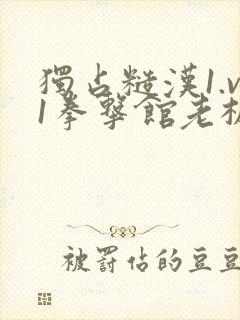 獨占糙漢1.v
1拳擊館老板
被罰站的豆豆